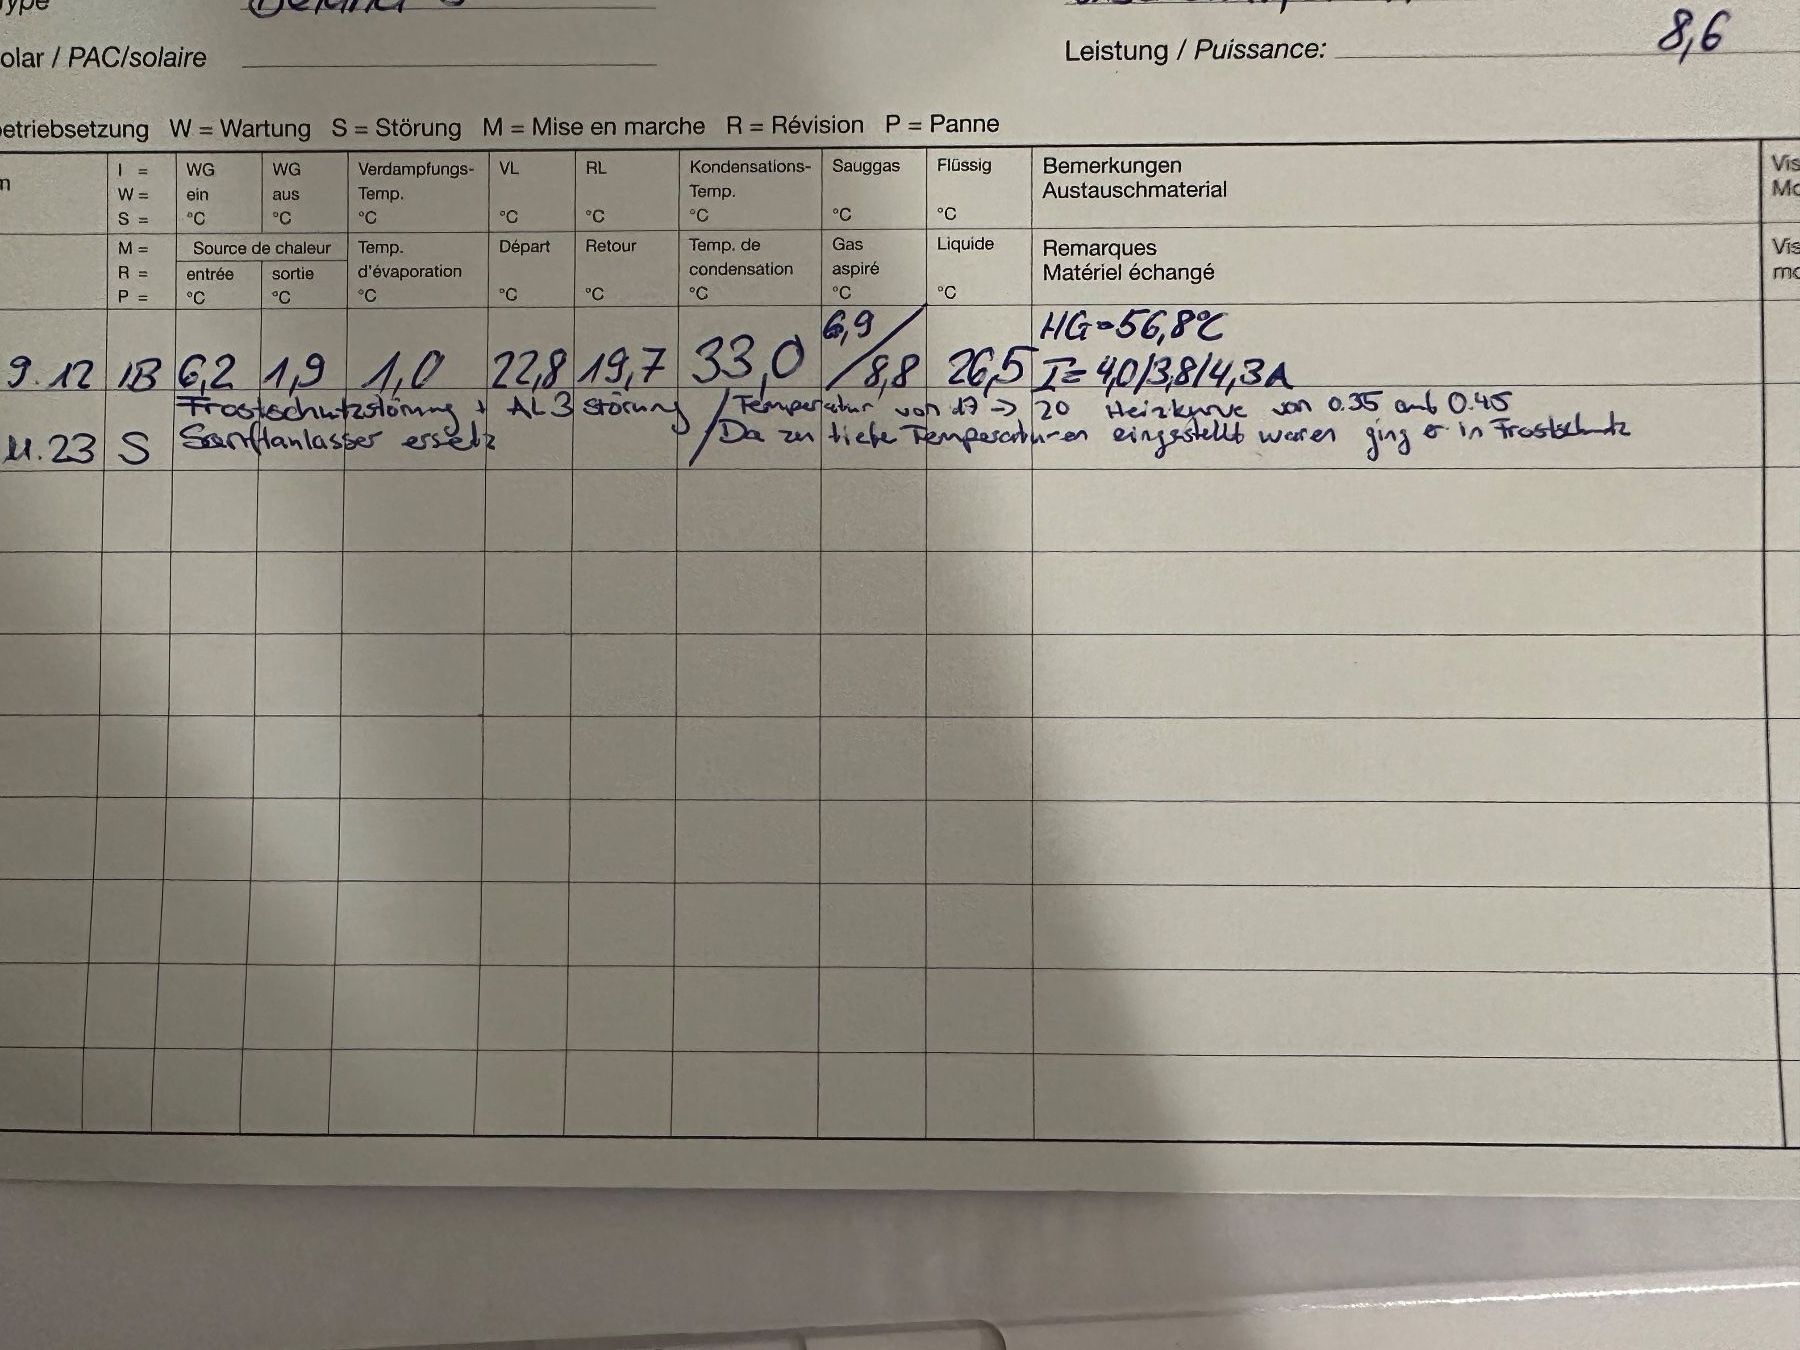 ype
olar / PAC/solaire
Leistung / Puissance: 8,6
etriebsetzung W = Wartung S = Störung M = Mise en marche R = Révision P = Panne
n
I =
W =
S =
WG
ein
°C
WG
aus
°C
Verdampfungs-
Temp.
°C
VL
°C
RL
°C
Kondensations-
Temp.
°C
Sauggas
°C
Flüssig
°C
Bemerkungen
Austauschmaterial
Vis
M =
R =
P =
Source de chaleur
entrée
°C
sortie
°C
Temp.
d'évaporation
°C
Départ
°C
Retour
°C
Temp. de
condensation
°C
Gas
aspiré
°C
Liquide
°C
Remarques
Matériel échangé
Vis
mo
9.12 IB 6,2 1,9 1,0 22,8 19,7 33,0 6,9 / 8,8 26,5 HG=56,8°C
I= 4,0/3,8/4,3A
Frostschutzstörung + AL3 störung / Temperatur von 17 -> 20 Heizkurve von 0.35 auf 0.45
11.23 S Sanftanlasser ersetz / Da zu tiefe Temperaturen eingestellt waren ging er in Frostschutz